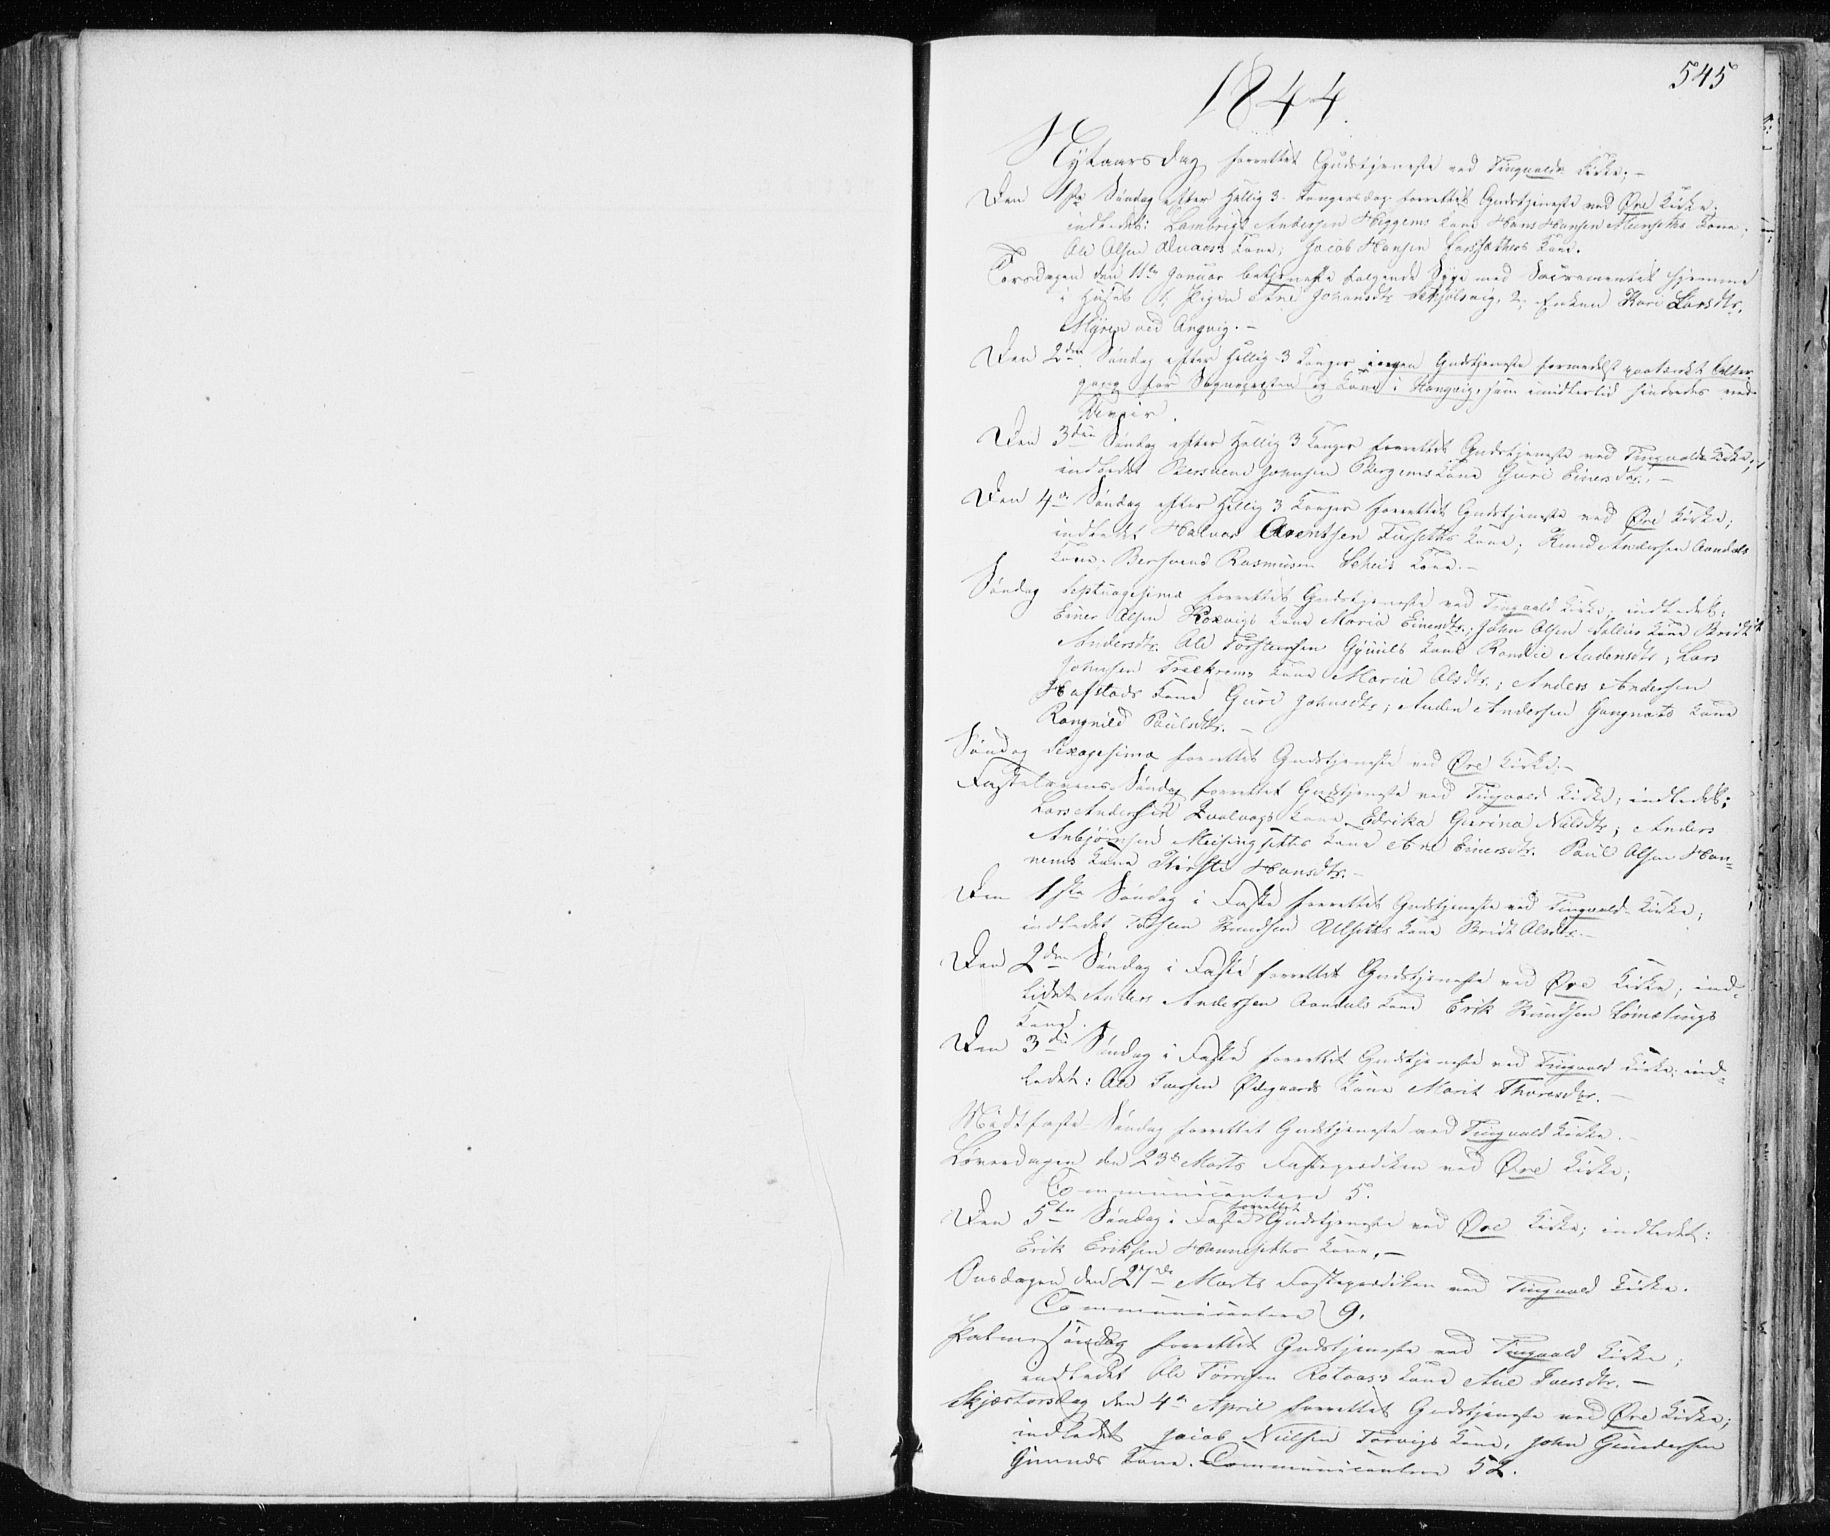 545
1844.
Nytaarsdag forrettet Gudstjeneste ved Tingvolds Kirke; —
Den 1ste Søndag efter Hellig 3 Kongersdag forrettet Gudstjeneste ved Øre Kirke;
indledet: Andersen Heggems Kone Hans Hansen Meinseths Kone,
Ole Olsen Kone; Jacob Hansen Kone.
Torsdagen den 11te Januar betjenste følgende Syge med Sacramentet hjemme
i Huset 1, Pigen Ane Johansdtr 2, Enken Kari Larsdtr.
Myren ved Angvig. —
Den 2den Søndag efter Hellig 3 Konger ingen Gudstjeneste formedelst paatænkt Alter
gang for Sognepræsten og Kone i Stangvig, som imidlertid hindredes ved
Den 3die Søndag efter Hellig 3 Konger forrettet Gudstjeneste ved Tingvolds Kirke;
indledet Johnsen Bergems Kone Guri Einersdtr. —
Den 4de Søndag efter Hellig 3 Konger forrettet Gudstjeneste ved Øre Kirke;
indledet Halvor Arentsen Furseths Kone; Knud Andersen Aandals
Kone. Bersvend Rasmusen Scheis Kone. —
Søndag Septuagesima forrettet Gudstjeneste ved Tingvold Kirke; indledet:
Einer Olsen Koxvigs Kone Maria Einersdtr.; John Olsen Kone Bridt
Andersdtr. Ole Torstensen Gyüils Kone Randie Audensdtr; Lars
Johnsen Kone Maria Olsdtr.; Anders Andersen
Hafstads Kone Guri Johnsdtr; Auden Andersen Gangnæs Kone
Rangnild Paulsdtr. —
Søndag Sexagesima forrettet Gudstjeneste ved Øre Kirke. —
Fastelavens Søndag forrettet Gudstjeneste ved Tingvold Kirke; indledet:
Lars Andersen Kone Edrika Gurina Nilsdtr; Anders
Anbjørnsen Meisingseths Kone Ane Einersdtr. Paul Olsen Han-
nems Kone Kirsti Hansdtr. —
Den 1ste Søndag i Faste forrettet Gudstjeneste ved Tingvold Kirke;
indledet Torsten Knudsen Ulseths Kone Bridt Olsdtr. —
Den 2den Søndag i Faste forrettet Gudstjeneste ved Øre Kirke; ind-
ledet Anders Andersen Aandals Kone Erik Knudsen
Kone.
Den 3die Søndag i Faste forrettet Gudstjeneste ved Tingvold Kirke; ind-
ledet: Ole Iversen Ødegaards Kone Marit Thoresdtr. —
Midtfaste-Søndag forrettet Gudstjeneste ved Tingvold Kirke. —
Løverdagen den 23de Marts Fasteprædiken ved Øre Kirke;
Communicantere 5.
Den 5te Søndag i Faste forrettet Gudstjeneste ved Øre Kirke; indledet:
Erik Eriksen Hanneseths Kone. —
Onsdagen den 27de Marts Fasteprædiken ved Tingvold Kirke.
Communicantere 9.
Palmesøndag forrettet Gudstjeneste ved Tingvold Kirke;
indledet Ole Kone Ane Iversdtr. —
Skjærtorsdag den 4de April forrettet Gudstjeneste ved Øre Kirke;
indledet Jacob Nielsen Torvigs Kone, John Gundersen
Gimnes Kone. Communicantere 52.